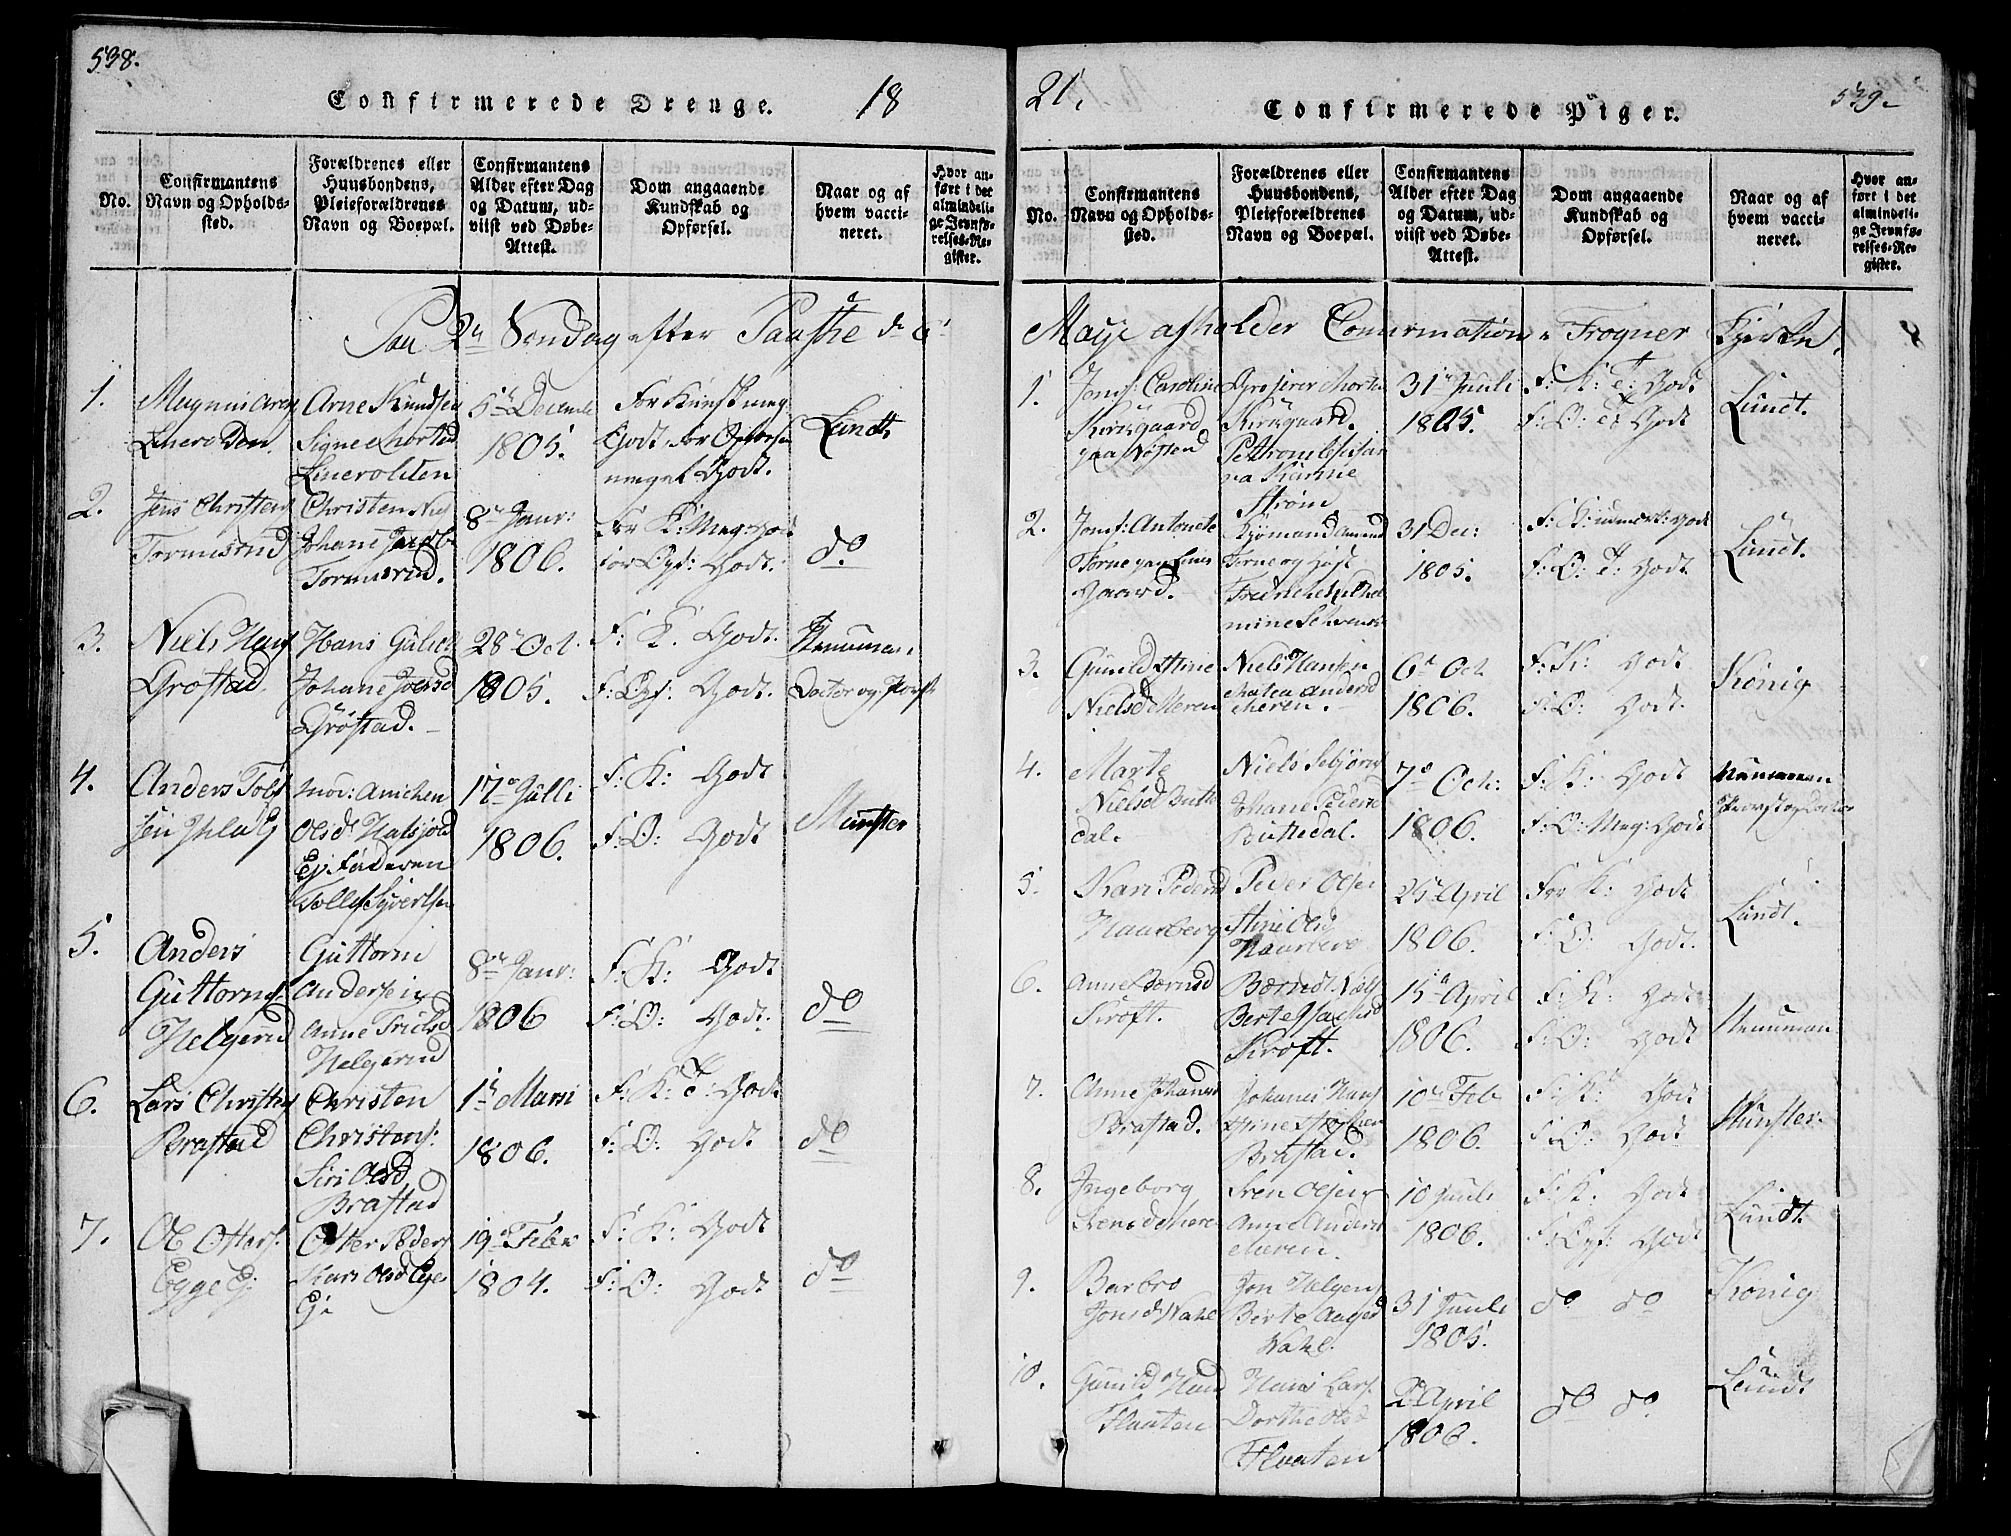 538.
Confirmerede Drenge.
18
No.
Confirmantens Navn og Opholds-sted.
Forældrenes eller Huusbondens, Pleieforældrenes Navn og Boepæl.
Confirmantens Alder efter Dag og Datum, ud-viist ved Døbe-Attest.
Dom angaaende Kundskab og Opførsel.
Naar og af hvem vacci-neret.
Hvor an-ført i det almindeli-ge Jevnfø-relses-Re-gister.
Paa 2den Søndag efter Paaske d. 6
1.
Arne Knudsen
5te Decemb
1805.
For Kundsk: meg
Godt, for Opførsel
meget Godt.
Lundt
2.
Jens Christens
Tormesrud
Christen Niels
Johane Jacobs
Tormesrud.
8de Janr:
1806.
For K: Meg: Godt
for Opf: Godt.
do.
3.
Niels Hans
Grøstad
Hans Gulbr
Johane
Grøstad.
28de Oct.
1805.
F: K. Godt.
F: Opf: Godt.
Neuman,
Doctor og Provst
4.
Anders Tolls
Mod: Anichen
Olsd
Ej Faderen
Tollef Syvertsen
17de Julli
1806.
F: K: Godt
F: O: Godt
Munster
5.
Anders
Guttorms
Helgerud
Guttorm
Andersen
Anne
Helgerud
8de Janr:
1806
F: K: Godt
F: O: Godt.
do
6.
Lars Christens
Brastad
Christen
Christens:
Siri Olsd
Brastad
1te Marsi
1806.
F: K: T: Godt
F: O: Godt
do
7.
Ole Otters:
Egge Ej
Otter Peders
Mari Olsd Egge
Ej
19de Febr
1804.
F: K: Godt
F: O: Godt
do
21,
Confirmerede Piger.
539.
No.
Confirmantens Navn og Opholds-sted.
Forældrenes eller Huusbondens, Pleieforældrenes Navn og Boepæl.
Confirmantens Alder efter Dag og Datum, ud-viist ved Døbe-Attest.
Dom angaaende Kundskab og Opførsel.
Naar og af hvem vacci-neret.
Hvor an-ført i det almindeli-ge Jevnfø-relses-Re-gister.
Maji afholder Confirmation i Frogner Kjirke.
1.
Jomf: Caroline
Kirsgaard
paa
Morten
Kirsgaard.
Strøm
31te Juuli
1805.
F: K: T: Godt
F: O: T: Godt
Lundt.
2.
Jomf: Antonete
Torne paa Lier
Gaard.
Kjømand
Torne og
31 Dec:
1805.
F: K: udmærk: Godt
F: O: T: Godt.
Lundt.
3.
Gunild Stine
Nielsd Meren
Niels Hansen
Malea Andersd
Meren.
6te Oct
1806.
F: K: Godt
F: O: Godt.
Konig
4.
Marte
Nielsd Butte
dal.
Niels
Johane Peders
Buttedal.
7de Oct:
1806.
F: K: Godt
F: O: Meg: Godt
Neuman
Provst og Doctor
5.
Kari Pedersd
Haarberg
Peder Olsen
Stine Olsd
Haarberg
25de April
1806.
For K: Godt
F: O: Godt.
Lundt.
6.
Anne Berntsd
Skroft.
Berndt
Berte
Skroft.
15de April
1806.
F: K: Godt
F: O: Godt
Neuman
7.
Anne Johans
Brastad.
Johanes Hans
Stine
Brastad.
10de Feb
1806.
F: K: Godt
F: O: Godt
Munster.
8.
Ingeborg
Sørensd Meren
Søren Olsen
Anne Anders
Meren.
10 Juuli
1806.
F: K: Godt
F: Opf: Godt
Lundt.
9.
Barbro
Jonsd Wahl
Jon Helgens
Berte
Wahl.
31 Juuli
1805.
do do
Konig
10.
Gunild Hansd
Flaaten
Hans Lars.
Dorthe Olsd
Flaaten
2de April
1806.
do do
Lundt